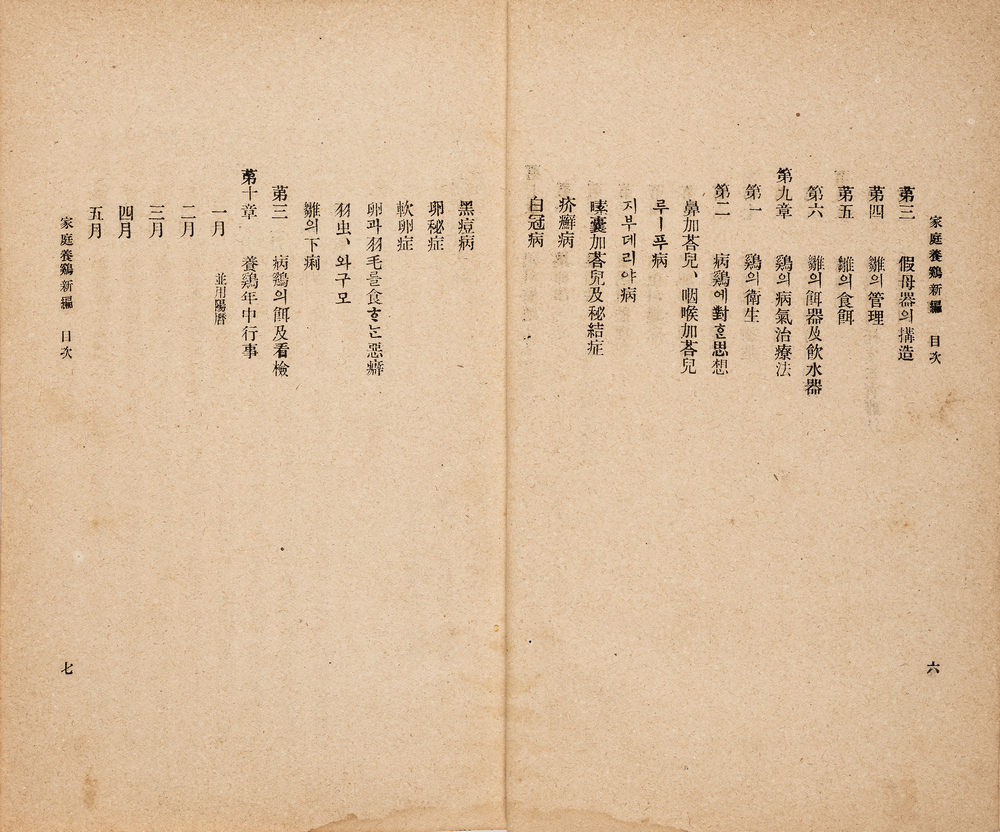 家庭養鷄新編 目次
第三 假母器의搆造
第四 雛의管理
第五 雛의食餌
第六 雛의餌器及飮水器
第九章 鷄의病氣治療法
第一 鷄의衛生
第二 病鷄에對ᄒᆞᆫ思想
鼻加荅兒、咽喉加荅兒
루ー푸病
지부데리야病
嗉囊加荅兒及秘結症
疥癬病
白冠病
六
黑痘病
卵秘症
軟卵症
卵과羽毛를食ᄒᆞ는惡癖
羽虫、와구모
雛의下痢
第三 病鷄의餌及看檢
第十章 養鷄年中行事
一月 並用陽曆
二月
三月
四月
五月
家庭養鷄新編 目次
七